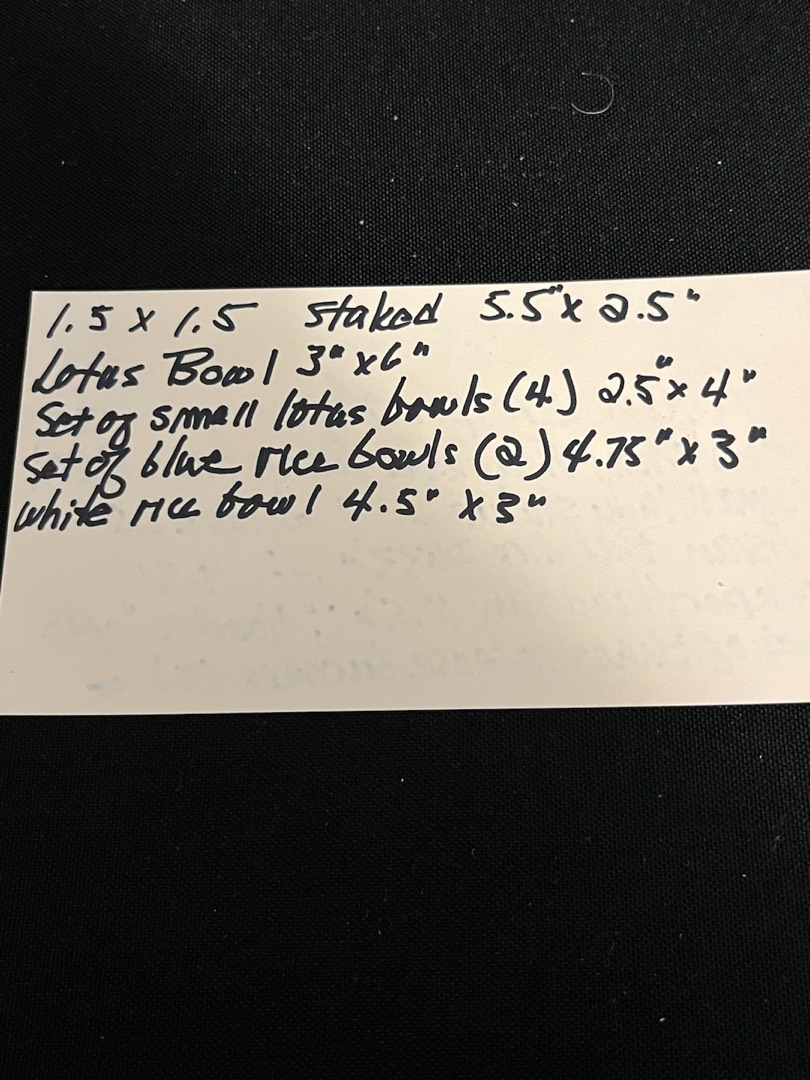 1.5 x 1.5 staked 5.5" x 2.5"
Lotus Bowl 3" x 6"
Set of small lotus bowls (4) 2.5" x 4"
set of blue rice bowls (2) 4.75" x 3"
white rice bowl 4.5" x 3"